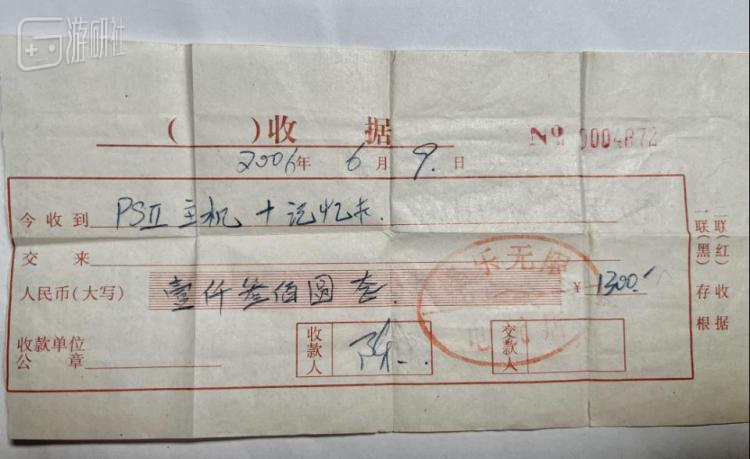 游研社
( )收 据
No 0004872
2006年 6月 9.日
今收到 PSII 主机 + 记忆卡.
交 来
人民币(大写) 壹仟叁佰圆 ¥ 1300.
乐无
收款单位公章
收款人
交款人
一联(黑)存根
二联(红)收据